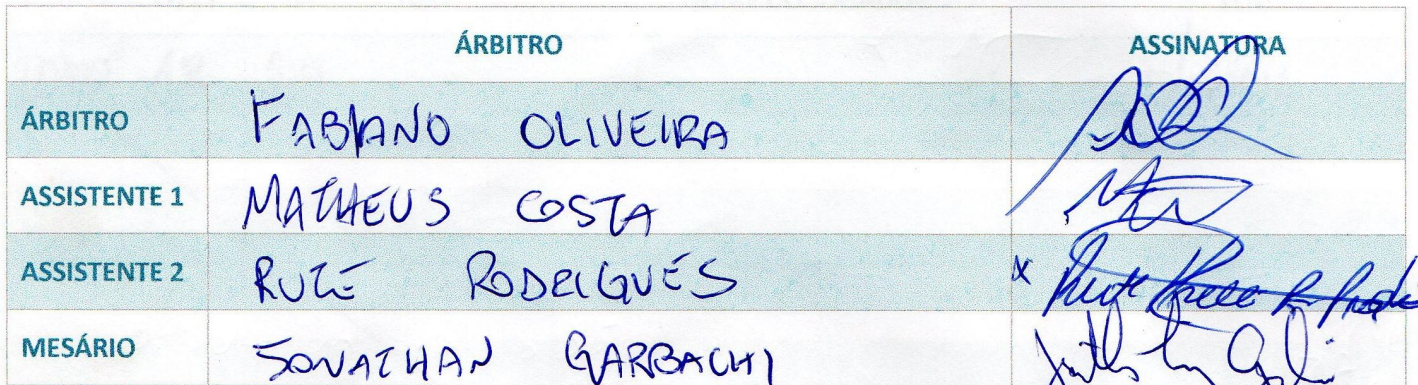 ÁRBITRO ASSINATURA
ÁRBITRO FABIANO OLIVEIRA
ASSISTENTE 1 MATHEUS COSTA
ASSISTENTE 2 RUTE RODRIGUES x
MESÁRIO JONATHAN GARBACHI